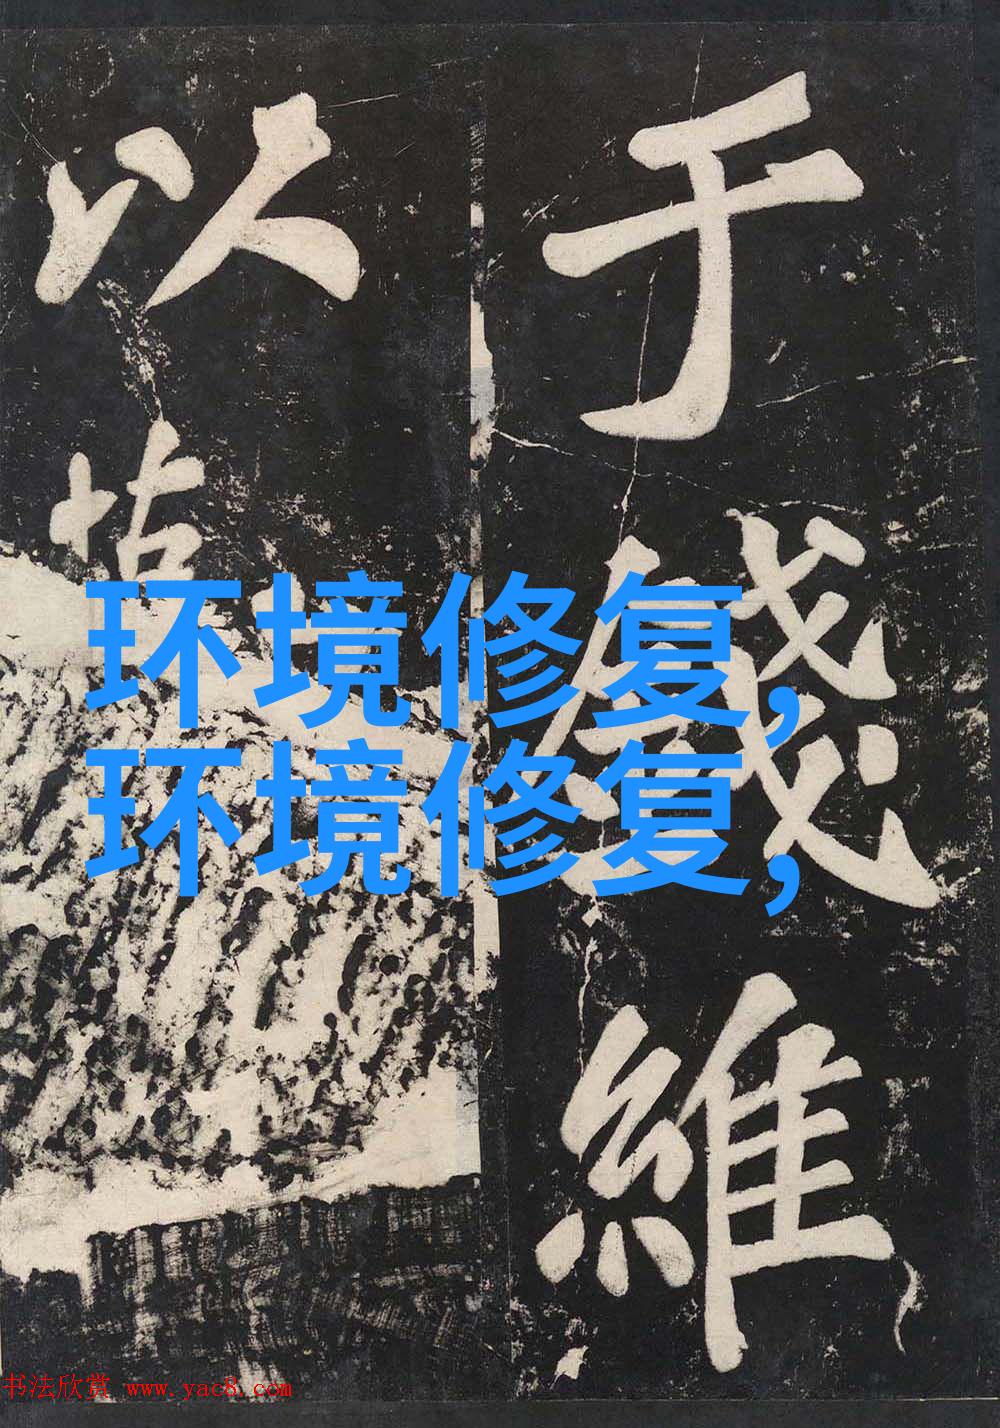 于
維
以
环境修复,
环境修复,
书法欣赏 www.yac8.com